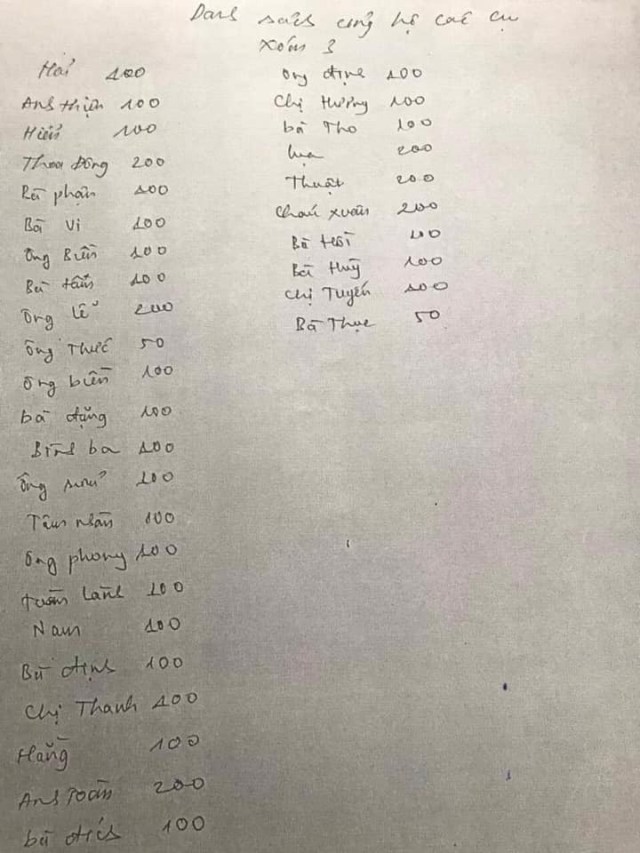 Danh sách ủng hộ các cụ
xóm 3
Hải 100
Anh thiện 100
Hiển 100
Thoa Đông 200
Bà phận 100
Bà Vi 100
Ông Biền 100
Bà tấn 100
Ông lễ 200
Ông Thức 50
Ông biền 100
bà đặng 100
Bình ba 100
Ông sửu 100
Tâm nhàn 100
Ông phong 100
tuấn Lành 100
Nam 100
Bà định 100
Chị Thanh 100
Hằng 100
Anh Toàn 200
bà 100
Ông định 100
Chị Hương 100
bà Tho 100
lụa 200
Thuật 200
cháu xuân 200
Bà Hồi 100
Bà Huỹ 100
Chị Tuyến 100
Bà Thục 50